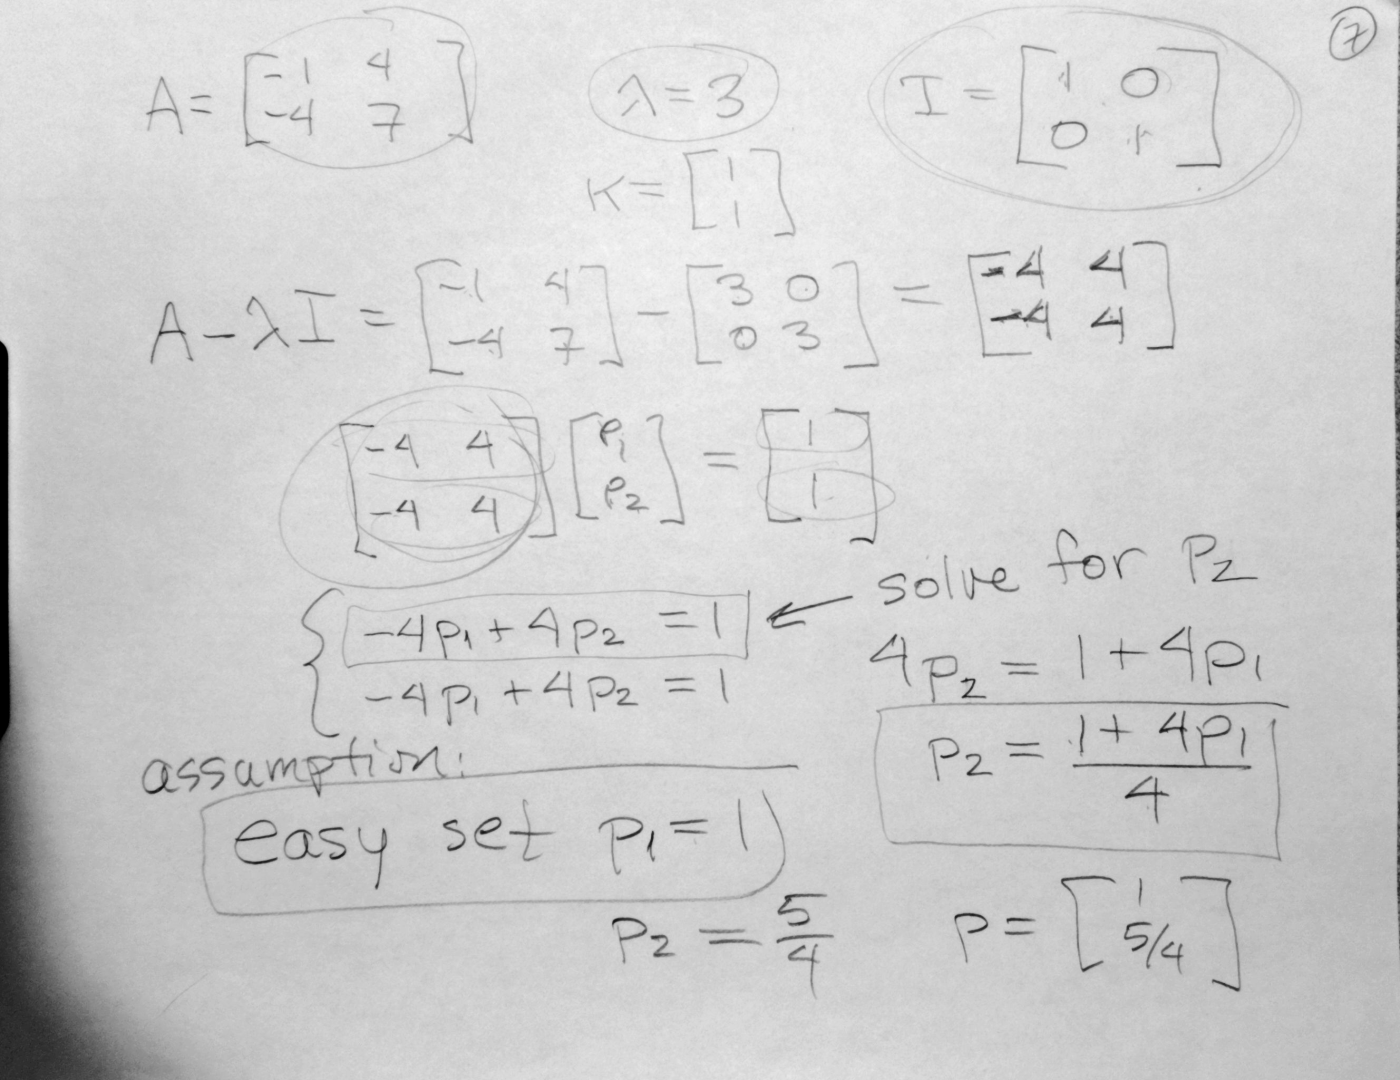 ⑦
A = [-1 4; -4 7] λ = 3 I = [1 0; 0 1]
K = [1; 1]
A - λI = [-1 4; -4 7] - [3 0; 0 3] = [-4 4; -4 4]
[-4 4; -4 4] [P₁; P₂] = [1; 1]
solve for P₂
-4p₁ + 4p₂ = 1
-4p₁ + 4p₂ = 1
4p₂ = 1 + 4p₁
p₂ = (1 + 4p₁)/4
assumption:
easy set p₁ = 1
P₂ = 5/4 P = [1; 5/4]